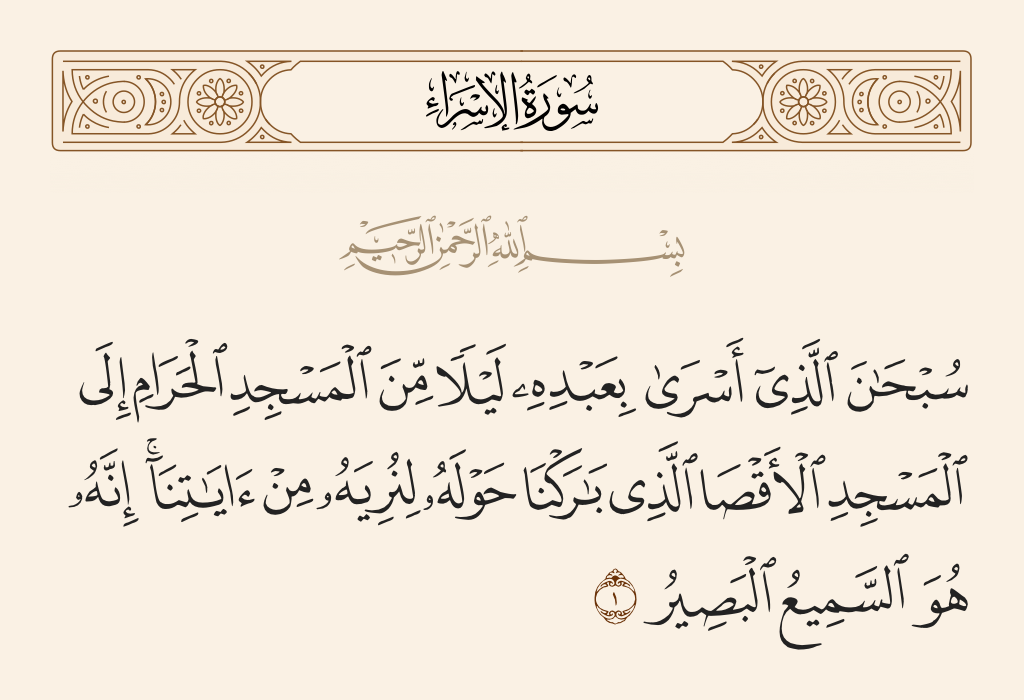 سُورَةُ الإِسْرَاءِ
بِسْمِ ٱللَّهِ ٱلرَّحْمَٰنِ ٱلرَّحِيمِ
سُبْحَٰنَ ٱلَّذِىٓ أَسْرَىٰ بِعَبْدِهِۦ لَيْلًا مِّنَ ٱلْمَسْجِدِ ٱلْحَرَامِ إِلَى
ٱلْمَسْجِدِ ٱلْأَقْصَا ٱلَّذِى بَٰرَكْنَا حَوْلَهُۥ لِنُرِيَهُۥ مِنْ ءَايَٰتِنَآ ۚ إِنَّهُۥ
هُوَ ٱلسَّمِيعُ ٱلْبَصِيرُ ١